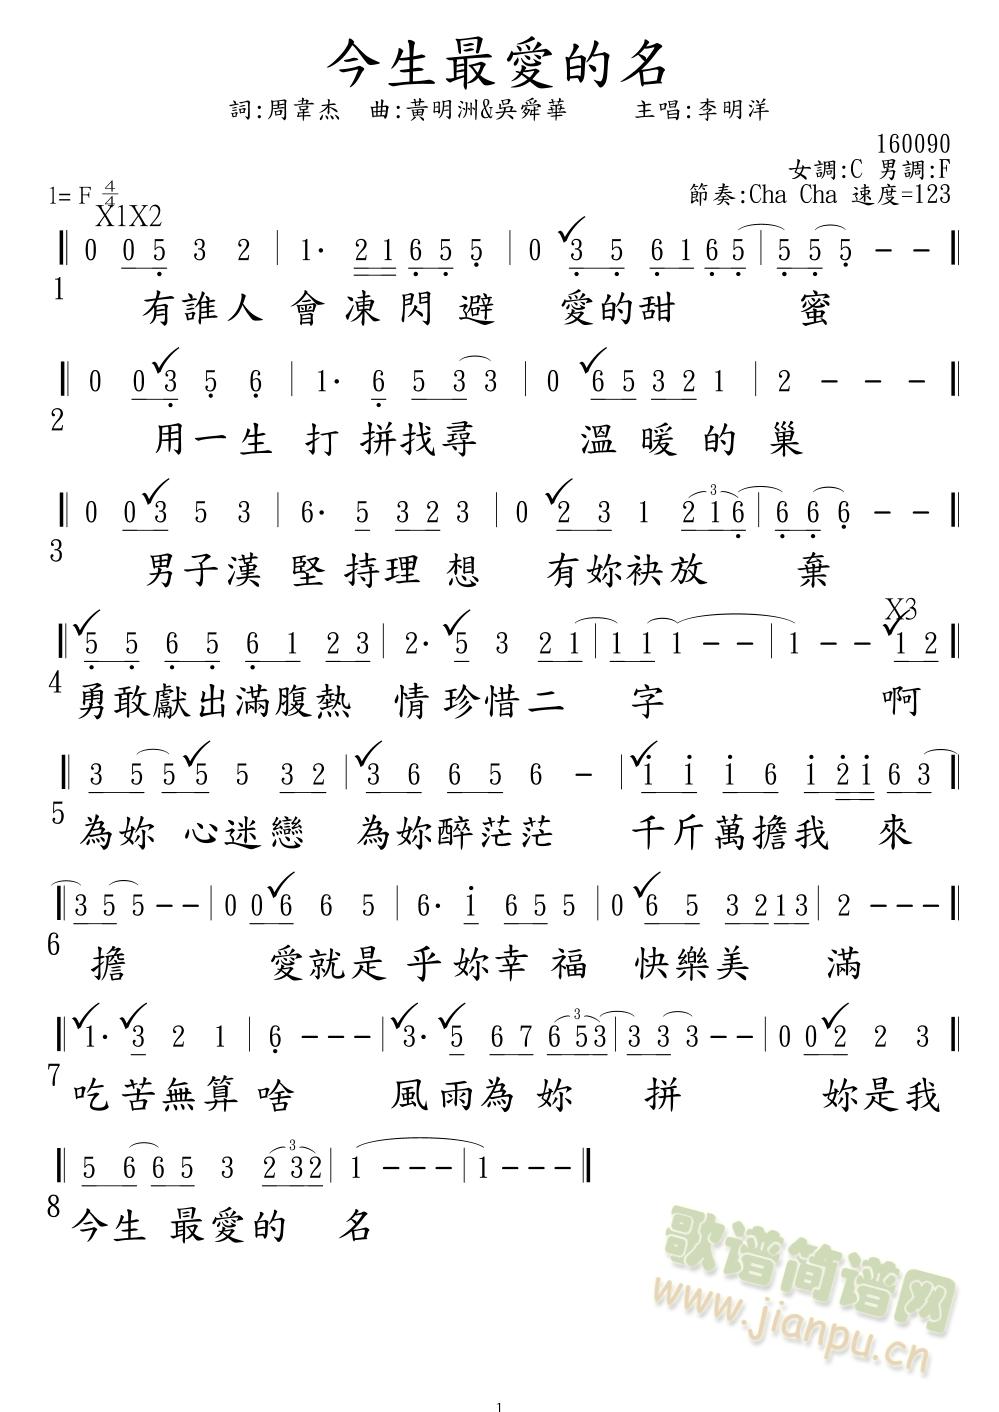 今生最愛的名
詞:周韋杰 曲:黃明洲&吳舜華 主唱:李明洋
160090
女調:C 男調:F
1= F 4/4 節奏:Cha Cha 速度=123
X1X2
0 0 5 3 2 | 1· 2 1 6 5 5 | 0 3 5 6 1 6 5 | 5 5 5 - -
1 有誰人 會 凍 閃 避 愛的甜 蜜
0 0 3 5 6 | 1· 6 5 3 3 | 0 6 5 3 2 1 | 2 - - -
2 用一生 打 拼找尋 溫 暖 的 巢
0 0 3 5 3 | 6· 5 3 2 3 | 0 2 3 1 2 1 6 | 6 6 6 - -
3 男子漢 堅 持理 想 有妳袂放 棄
X3
5 5 6 5 6 1 2 3 | 2· 5 3 2 1 | 1 1 1 - - | 1 - - 1 2
4 勇敢獻出滿腹熱 情 珍惜二 字 啊
3 5 5 5 5 3 2 | 3 6 6 5 6 - | 1 1 1 6 1 2 1 6 3
5 為妳 心迷戀 為妳醉茫茫 千斤萬擔我 來
3 5 5 - - | 0 0 6 6 5 | 6· 1 6 5 5 | 0 6 5 3 2 1 3 | 2 - - -
6 擔 愛就是 乎妳幸 福 快樂美 滿
1· 3 2 1 | 6 - - - | 3· 5 6 7 6 5 3 | 3 3 3 - - | 0 0 2 2 3
7 吃 苦無算 啥 風雨為 妳 拼 妳是我
5 6 6 5 3 2 3 2 | 1 - - - | 1 - - -
8 今生 最愛的 名
歌谱简谱网
www.jianpu.cn
1